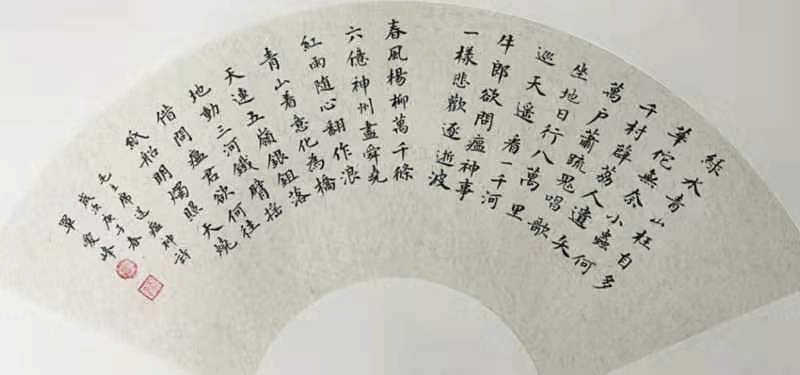 綠水青山枉自多
華佗無奈小蟲何
千村薜荔人遺矢
萬户蕭疏鬼唱歌
坐地日行八萬里
巡天遥看一千河
牛郎欲問瘟神事
一樣悲歡逐逝波
春風楊柳萬千條
六億神州盡舜堯
紅雨隨心翻作浪
青山着意化為橋
天連五嶺銀鋤落
地動三河鐵臂搖
借問瘟君欲何往
紙船明燭照天燒
毛主席送瘟神詩
庚子春